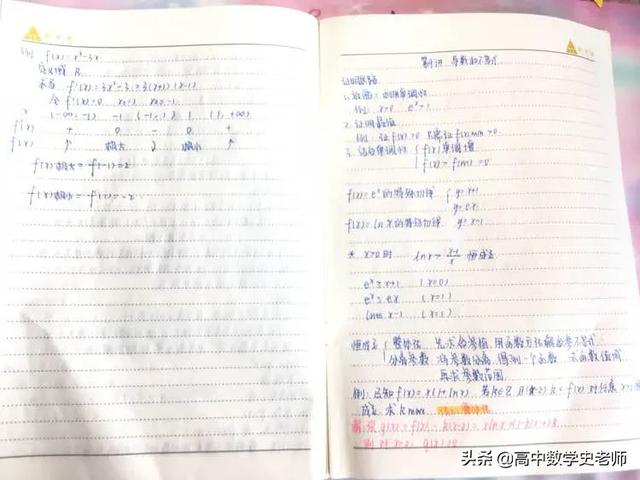 例 f(x)=x³-3x
定义域 R
求导 f'(x)=3x²-3=3(x+1)(x-1)
令 f'(x)=0 x=1 x=-1
x (-∞,-1) -1 (-1,1) 1 (1,+∞)
f'(x) + 0 - 0 +
f(x) ↑ 极大 ↓ 极小 ↑
f(x)极大=f(-1)=2
f(x)极小=f(1)=-2
导数和不等式
证明
例: x>0 e^x>1
2. 证明最值
例: 证 f(x)>0 只需证 f(x)min>0
3. 单调性 f(x)单调增
f(x)=e^x 的特殊切线 y=x+1
y=ex
f(x)=lnx 的特殊切线 y=x-1
* x>0时 lnx 恒成立
e^x≥x+1 (x=0)
e^x≥ex (x=1)
lnx≤x-1 (x=1)
恒成立 整体法 先求含参值,用函数方法解含参不等式
分离参数 将参数分离,得到一个函数 求函数值域
再求参数范围
例: 已知 f(x)=x(1+lnx) 若k∈Z, k(x-2)<f(x) 对任意 x>2
成立,求 k max
头条 @高中数学史老师